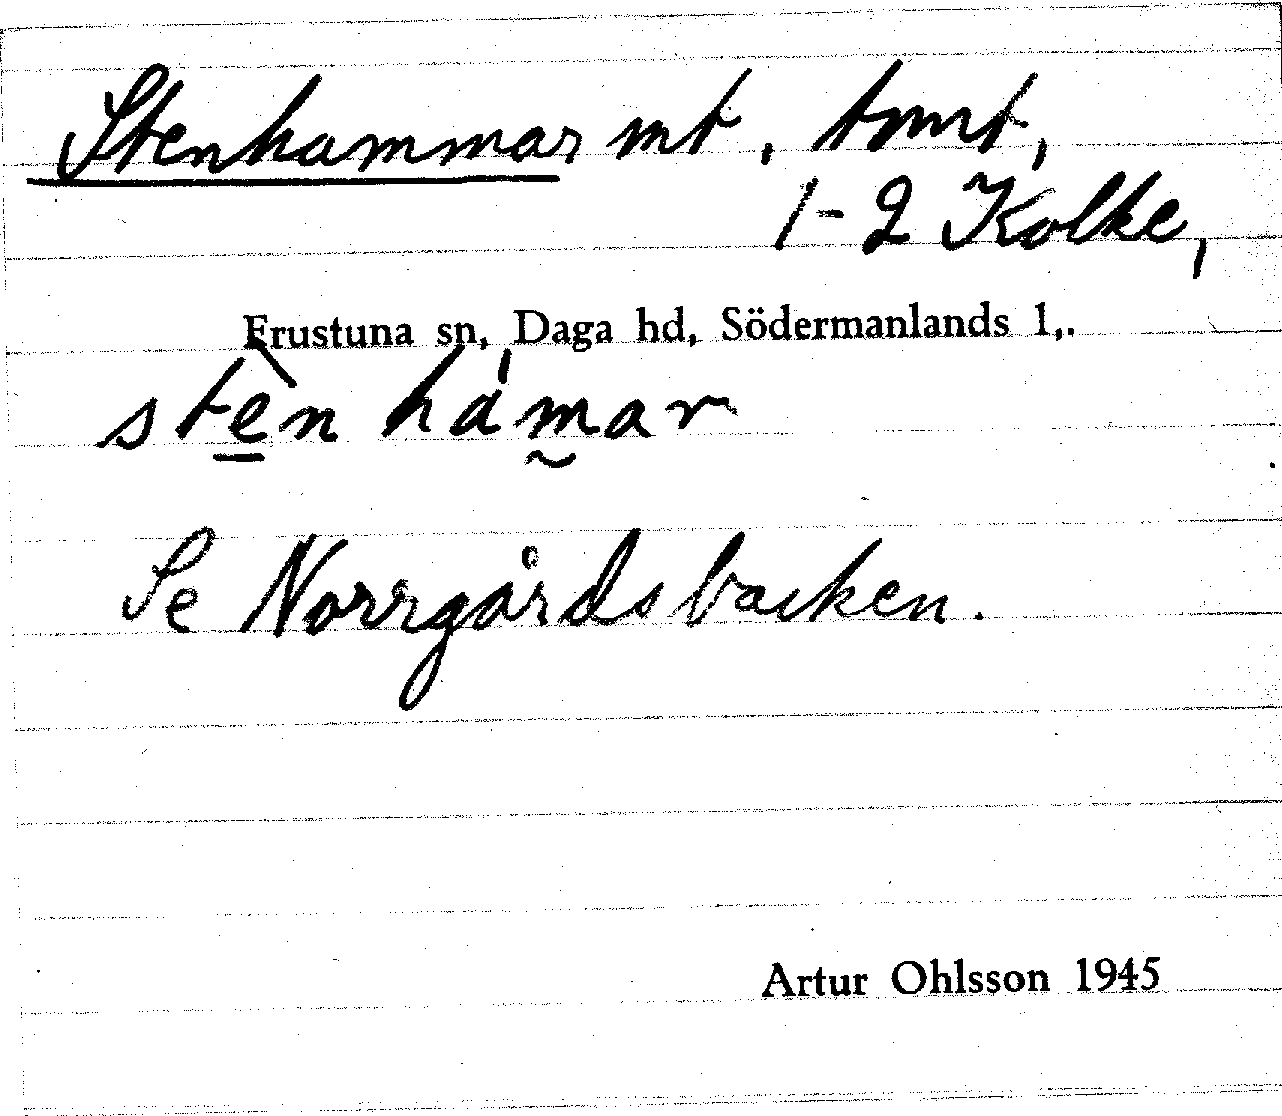 Stenhammar mt, tomt,
1-2 Kolke,
Frustuna sn, Daga hd, Södermanlands l,.
stèn hámar
Se Norrgårdsbacken.
Artur Ohlsson 1945